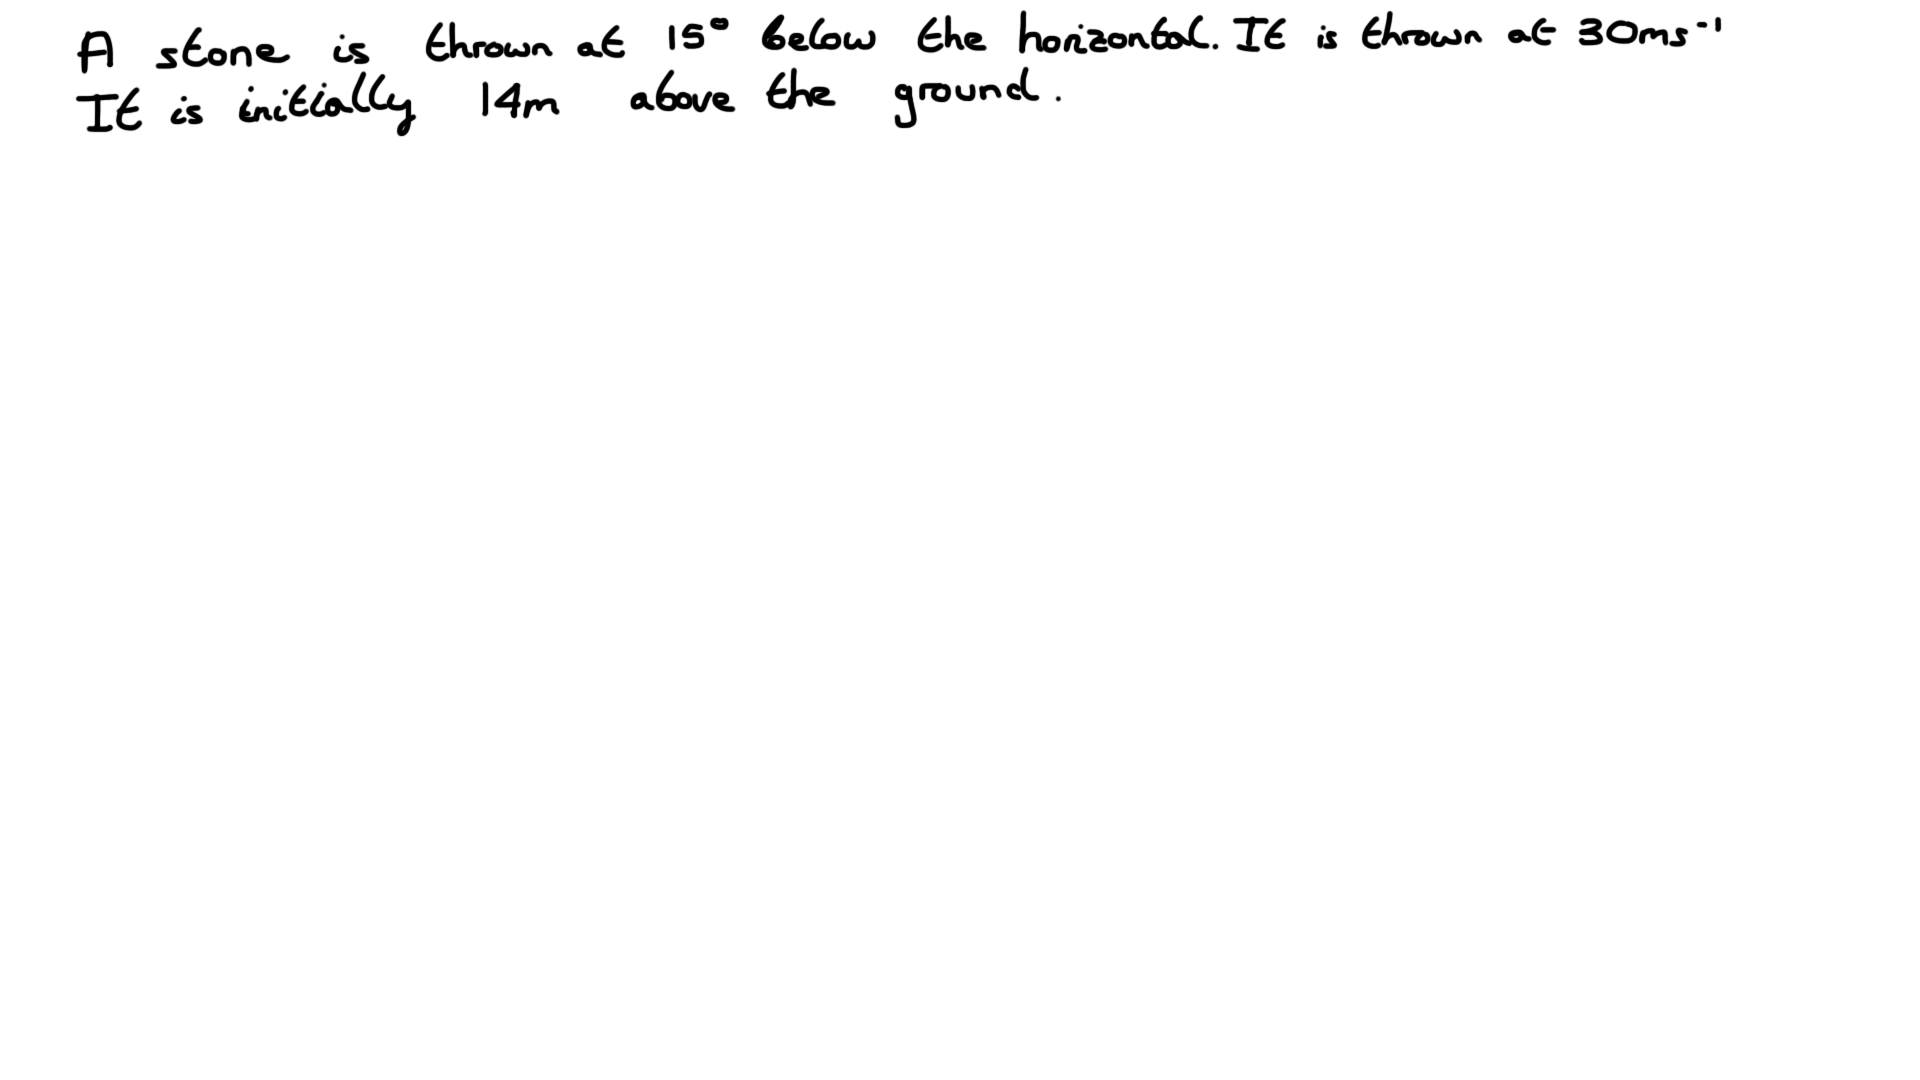 A stone is thrown at 15° below the horizontal. It is thrown at 30ms⁻¹
It is initially 14m above the ground.